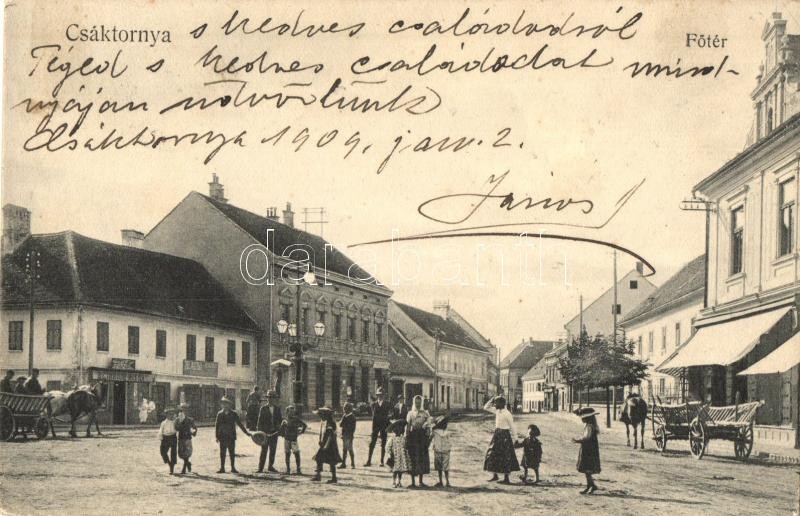 Csáktornya
Főtér
s kedves családodról
Téged s kedves családodat mind-
nyájan üdvözlünk
Csáktornya 1909. jan. 2.
János
darabanth